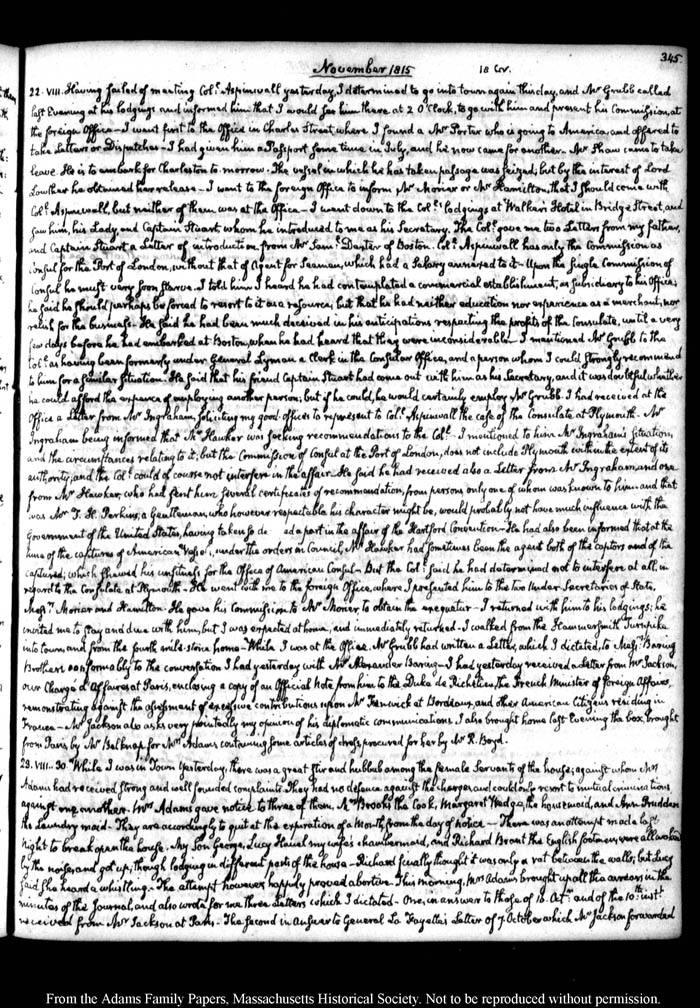 345.
November 1815
18 Cor.
22. VIII. Having failed of meeting Coll. Aspinwall yesterday, I determined to go into town again this day, and Mr Grubb called
last Evening at his lodgings and informed him that I would see him there at 2 O'Clock, to go with him and present his Commission at
the foreign Office — I went first to the Office in Charles Street where I found a Mr Porter who is going to America, and offered to
take Letters or Dispatches — I had given him a Passport some time in July, and he now came for another. Mr Shaw came to take
leave. He is to embark for Charleston to-morrow. The vessel in which he has taken passage was seized, but by the interest of Lord
Lowther he obtained her release — I went to the Foreign Office to inform Mr Morier or Mr Hamilton, that I should come with
Coll. Aspinwall, but neither of them was at the Office — I went down to the Coll's lodgings at Walker's Hotel in Bridge Street, and
saw him, his Lady, and Captain Stuart, whom he introduced to me as his Secretary. The Coll. gave me two Letters from my father,
and Captain Stuart a Letter of introduction, from Mr Saml. Dexter of Boston. Coll. Aspinwall has only the Commission as
Consul for the Port of London, without that of Agent for Seamen, which had a Salary annexed to it — Upon the single Commission of
Consul he must very soon starve. I told him I heard he had contemplated a commercial establishment, as subsidiary to his Office;
he said he should perhaps be forced to resort to it as a resource, but that he had neither education nor experience as a merchant, nor
relish for the business. He said he had been much deceived in his anticipations respecting the profits of the Consulate, until a very
few days before he had embarked at Boston, when he had heard that they were inconsiderable. I mentioned Mr Grubb to the
Coll. as having been formerly under General Lyman a Clerk in the Consular Office, and a person whom I could strongly recommend
to him for a similar situation. He said that his friend Captain Stuart had come out with him as his Secretary, and it was doubtful whether
he could afford the expence of employing another person; but if he could, he would certainly employ Mr Grubb. I had received at the
Office a Letter from Mr Ingraham, soliciting my good offices to represent to Coll. Aspinwall the case of the Consulate at Plymouth. Mr
Ingraham being informed that Mr Hawker was seeking recommendations to the Coll. — I mentioned to him Mr Ingraham's situation,
and the circumstances relating to it; but the Commission of Consul at the Port of London, does not include Plymouth within the extent of its
authority; and the Coll. could of course not interfere in the affair — He said he had received also a Letter from Mr Ingraham, and one
from Mr Hawker, who had sent him several certificates of recommendation, from persons only one of whom was known to him — and that
was Mr T. H. Perkins, a Gentleman, who however respectable his character might be, would probably not have much influence with the
Government of the United States, having taken so de ed a part in the affair of the Hartford Convention — He had also been informed that at the
time of the captures of American Vessels, under the orders in Council, Mr Hawker had sometimes been the agent both of the captors and of the
captured; which shewed his unfitness for the Office of American Consul — But the Coll. said he had determined not to interfere at all, in
regard to the Consulate at Plymouth — He went with me to the foreign Office, where I presented him to the two Under Secretaries of State,
Messrs. Morier and Hamilton. He gave his Commission to Mr Morier, to obtain the exequatur — I returned with him to his lodgings; he
invited me to stay and dine with him, but I was expected at home, and immediately returned. I walked from the Hammersmith Turnpike
into town, and from the fourth mile stone home — While I was at the Office, Mr Grubb had written a Letter, which I dictated, to Messrs. Baring
Brothers conformably to the conversation I had yesterday with Mr Alexander Baring — I had yesterday received a letter from Mr Jackson,
our Chargé d'Affaires at Paris, enclosing a copy of an Official Note from him to the Duke de Richelieu, the French Minister of foreign Affairs,
remonstrating against the assessment of excessive contributions upon Mr Fenwick at Bordeaux, and other American Citizens residing in
France — Mr Jackson also asks very pointedly my opinion of his diplomatic communications. I also brought home last Evening the box, brought
from Paris by Mr Belknap for Mrs Adams containing some articles of dress, procured for her by Mr R. Boyd.
23. VIII. 30. While I was in Town yesterday, there was a great stir and hubbub among the female Servants of the house; against whom Mrs
Adams had received strong and well founded complaints. They had no defence against the charges, and could only resort to mutual criminations
against one another. Mrs Adams gave notice to three of them, Mrs Brooks the Cook, Margaret Wedge, the housemaid, and Ann Prudden
the Laundry maid — They are accordingly to quit at the expiration of a Month, from the day of notice — There was an attempt made last
Night to break open the house. My Son George, Lucy my wife's chambermaid, and Richard the English footman, were all awaked
by the noise, and got up; though lodging in different parts of the house — Richard finally thought it was only a rat between the walls; but Lucy
said she heard a whistling — The attempt however, happily proved abortive. This morning, Mrs Adams brought up all the arrears in the
minutes of the Journal, and also wrote for me three Letters which I dictated — One, in answer to those of 16. Octr. and of the 10th inst.
received from Mr Jackson at Paris — The second in Answer to General La Fayette's Letter of 7. October which Mr Jackson forwarded
From the Adams Family Papers, Massachusetts Historical Society. Not to be reproduced without permission.